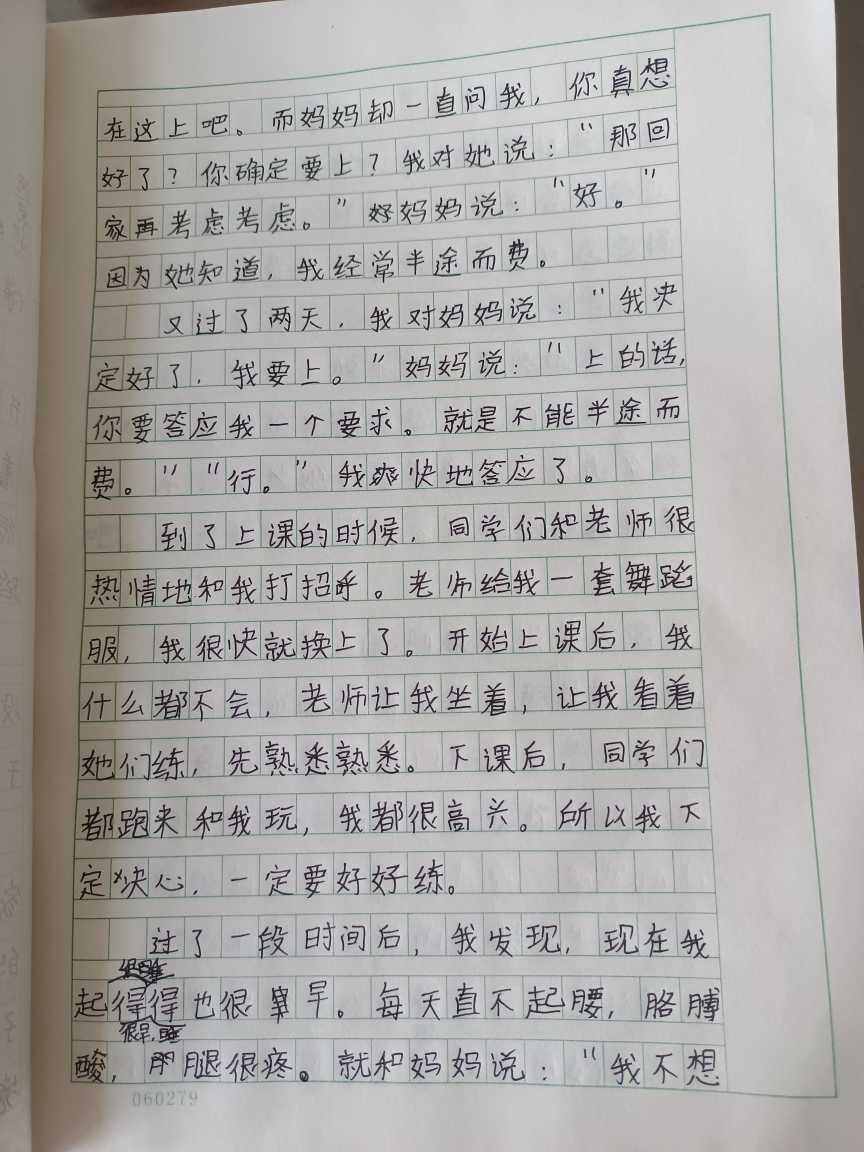 在这上吧。而妈妈却一直问我，你真想
好了？你确定要上？我对她说：“那回
家再考虑考虑。”妈妈说：“好。”
因为她知道，我经常半途而费。
又过了两天，我对妈妈说：“我决
定好了，我要上。”妈妈说：“上的话，
你要答应我一个要求。就是不能半途而
费。”“行。”我爽快地答应了。
到了上课的时候，同学们和老师很
热情地和我打招呼。老师给我一套舞蹈
服，我很快就换上了。开始上课后，我
什么都不会，老师让我坐着，让我看着
她们练，先熟悉熟悉。下课后，同学们
都跑来和我玩，我都很高兴。所以我下
定决心，一定要好好练。
过了一段时间后，我发现，现在我
起得很早，睡得也很早。每天直不起腰，胳膊
酸，腿很疼。就和妈妈说：“我不想
060279